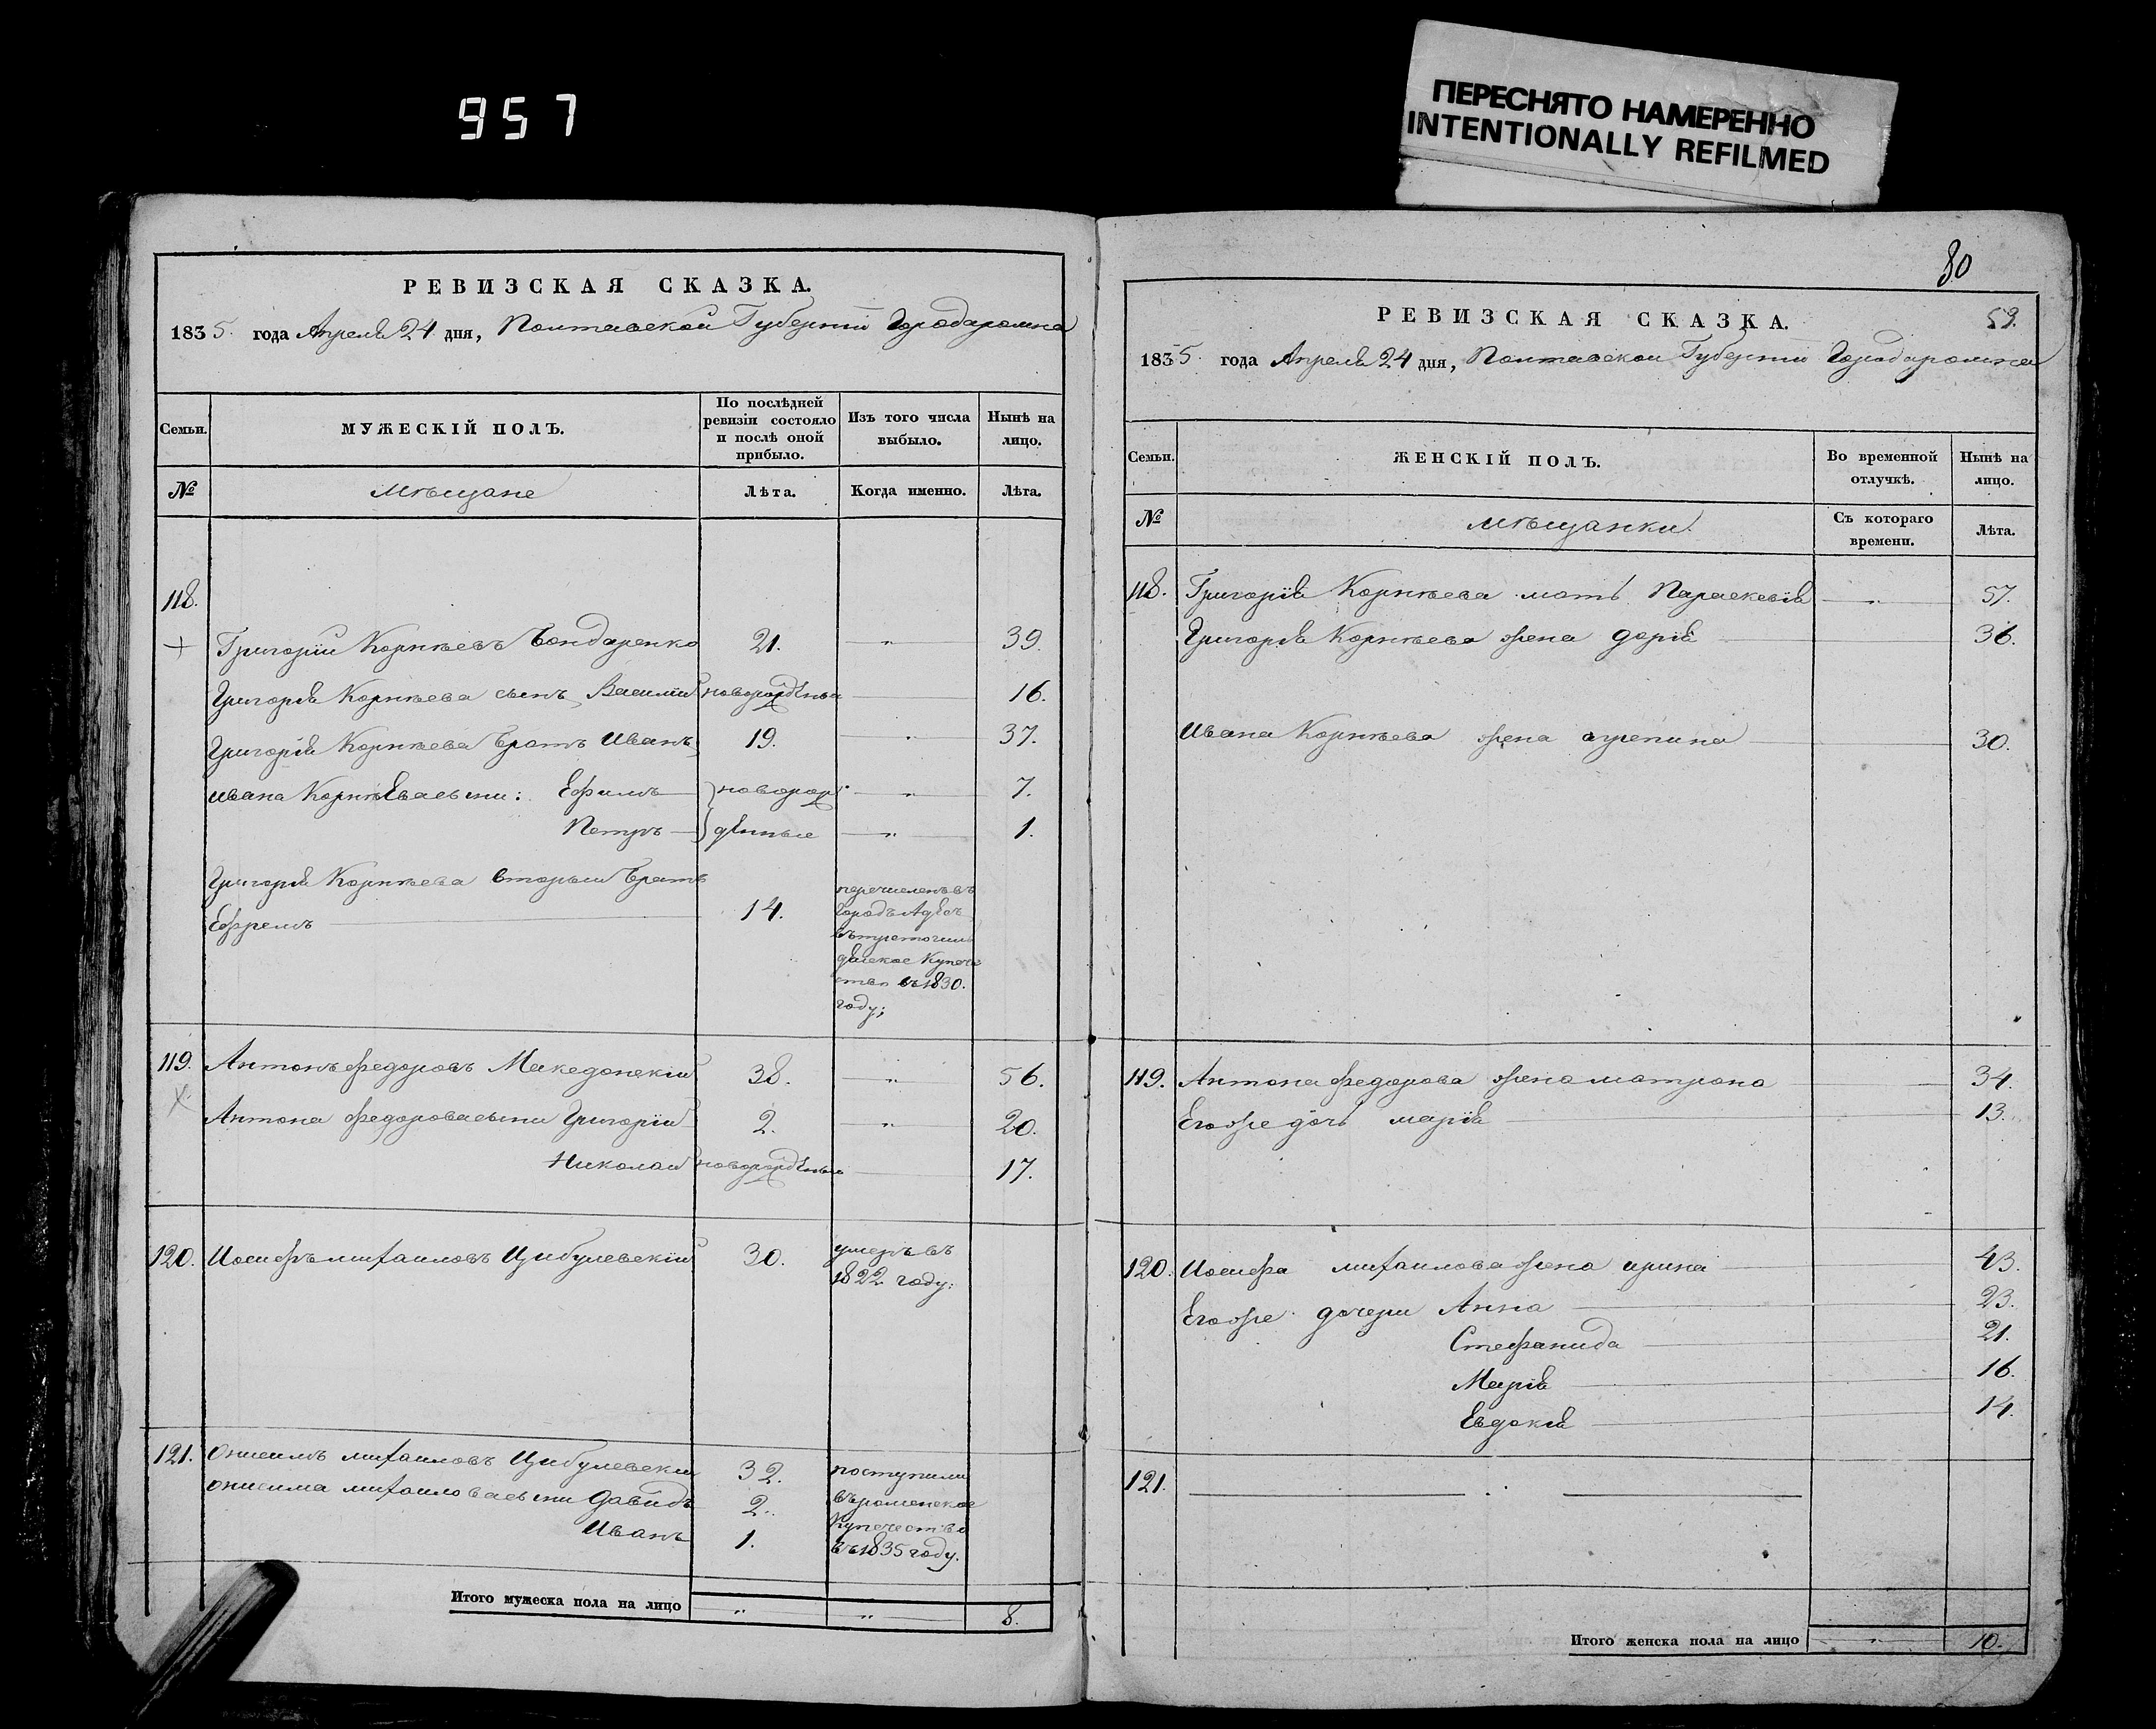 957
ПЕРЕСНЯТО НАМЕРЕННО
INTENTIONALLY REFILMED
РЕВИЗСКАЯ СКАЗКА.
1835. года Апреля 24 дня, Полтавской Губернии Города Ромна
Семьи. МУЖЕСКІЙ ПОЛЪ. По послѣдней ревизіи состояло и послѣ оной прибыло. Изъ того числа выбыло. Нынѣ на лицо.
№ Мѣщане Лѣта. Когда именно. Лѣта.
118.
Григорій Корнѣевъ Бондаренко 21. „ 39.
Григорія Корнѣева сынъ Василій новорожденъ 16.
Григорія Корнѣева братъ Иванъ 19. „ 37.
Ивана Корнѣева сыни: Ефимъ новорож „ 7.
Петръ денные „ 1.
Григорія Корнѣева вторый братъ
Ефремъ 14.
перечисленъ въ
городъ Адесъ
въ третогиль
дейское Купече
ство въ 1830.
году;
119. Антонъ Федоровъ Македонскій 38. „ 56.
Антона Федорова сыни Григорій 2. „ 20.
Николай новорожденъ 17.
120. Иосифъ михаиловъ Цибулевскій 30. умеръ въ
1822 году:
121. Онисимъ михаиловъ Цибулевскій 32. поступили
онисима михаилова сыни Давидъ 2. въ роменское
Иванъ 1. Купечество
въ 1835 году.
Итого мужеска пола на лицо „ „ 8.
80
59.
РЕВИЗСКАЯ СКАЗКА.
1835. года Апреля 24 дня, Полтавской Губернии Города Ромна
Семьи. ЖЕНСКІЙ ПОЛЪ. Во временной отлучкѣ. Нынѣ на лицо.
№ мѣщанки. Съ котораго времени. Лѣта.
118. Григорія Корнѣева мать Параскевія „ 57.
Григорія Корнѣева жена дарія 36.
Ивана Корнѣева жена агрепина 30.
119. Антона Федорова жена матрона 34.
Его же дочь марія 13.
120. Иосифа михаилова жена ирина 43.
Его же дочери Анна 23.
Стефанида 21.
Марія 16.
Евдокія 14.
121.
Итого женска пола на лицо „ 10.